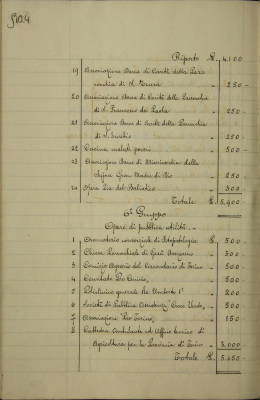 Riporto £. 4,100
19 Associazione Dame di Carità della Par-
rocchia di S. Teresa " 250 -
20 Associazione Dame di Carità della Parrocchia
di S. Francesco da Paola " 250 -
21 Associazione Dame di Carità della Parrocchia
di S. " 250 -
22 Cucina malati poveri " 500 -
23 Associazione Dame di Misericordia della
Gran Madre di Dio " 250 -
24 Opera Pia del Baliatico " 300 -
Totale £. 5,900
6º Gruppo
Opere di pubblica utilità. -
1 £. 500 -
2 Chiesa Parrocchiale di Gesù " 300 -
3 Comizio Agrario del Circondario di Torino " 500 -
4 Pro " 500 -
5 generale Re Umberto Iº " 200 -
6 Società di Pubblica Assistenza "Croce Verde" " 300 -
7 Associazione "Pro Torino" " 150 -
8 Cattedra Ambulante ed Ufficio tecnico di
Agricoltura per la Provincia di Torino " 3,000 -
Totale £. 5,450 -